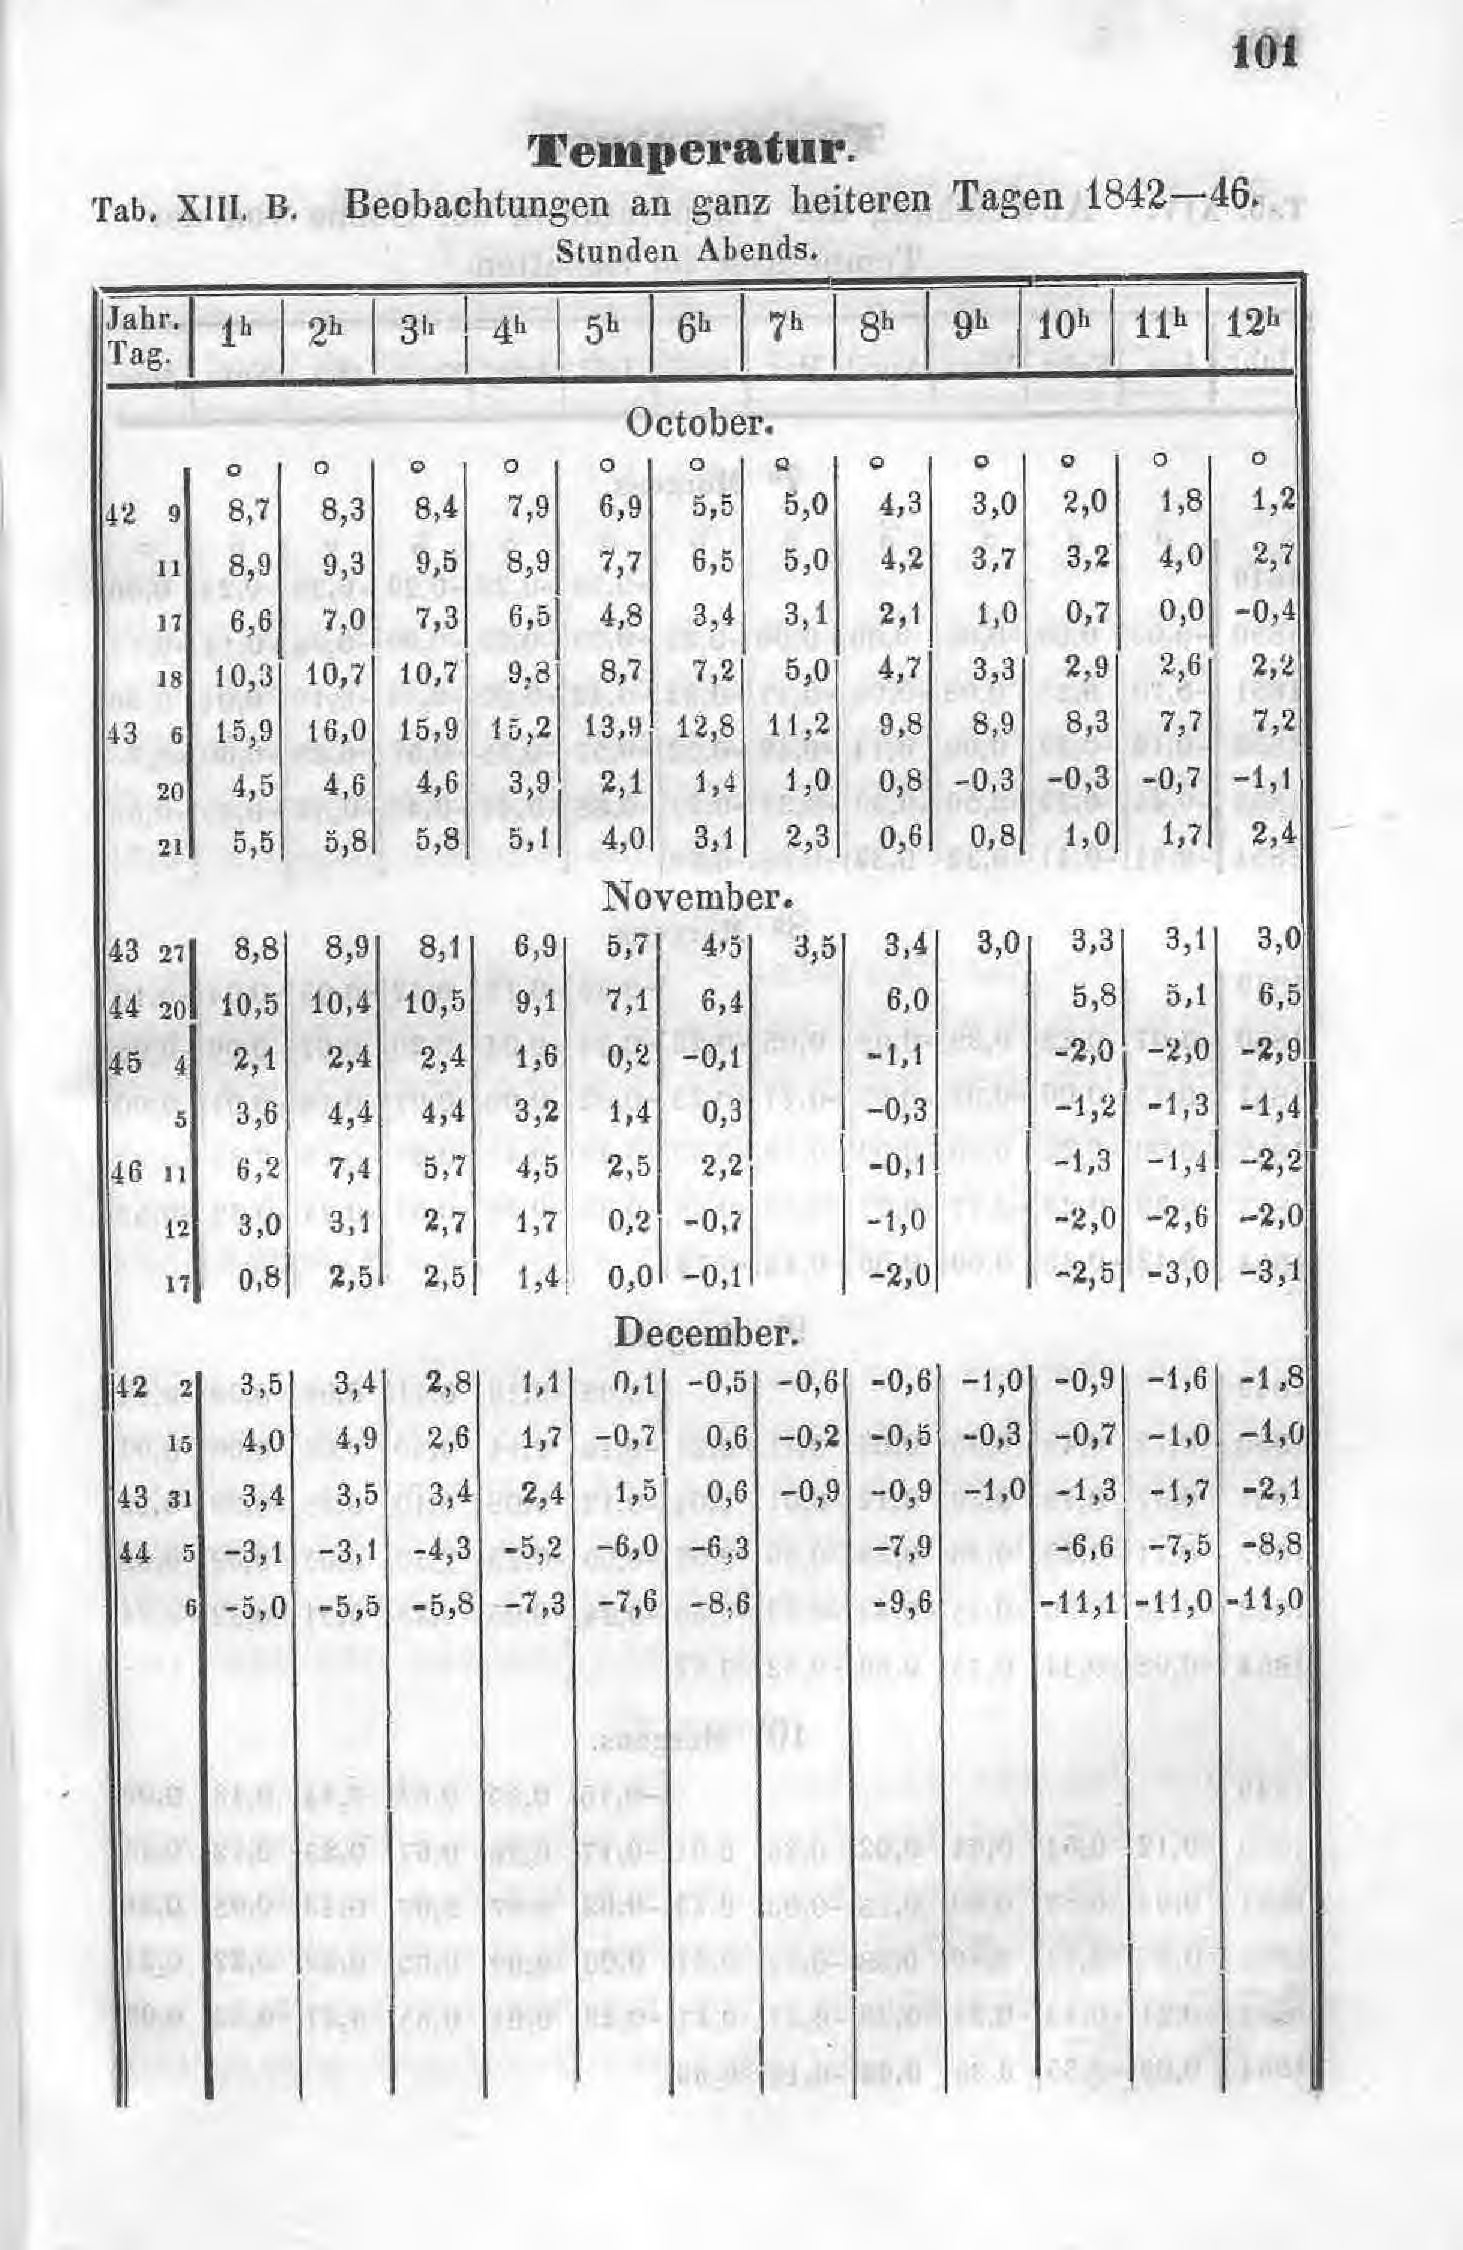 101
Temperatur.
Tab. XIII. B. Beobachtungen an ganz heiteren Tagen 1842—46.
Stunden Abends.
Jahr. Tag. 1h 2h 3h 4h 5h 6h 7h 8h 9h 10h 11h 12h
October.
o o o o o o o o o o o o
42 9 8,7 8,3 8,4 7,9 6,9 5,5 5,0 4,3 3,0 2,0 1,8 1,2
11 8,9 9,3 9,5 8,9 7,7 6,5 5,0 4,2 3,7 3,2 4,0 2,7
17 6,6 7,0 7,3 6,5 4,8 3,4 3,1 2,1 1,0 0,7 0,0 -0,4
18 10,3 10,7 10,7 9,8 8,7 7,2 5,0 4,7 3,3 2,9 2,6 2,2
43 6 15,9 16,0 15,9 15,2 13,9 12,8 11,2 9,8 8,9 8,3 7,7 7,2
20 4,5 4,6 4,6 3,9 2,1 1,4 1,0 0,8 -0,3 -0,3 -0,7 -1,1
21 5,5 5,8 5,8 5,1 4,0 3,1 2,3 0,6 0,8 1,0 1,7 2,4
November.
43 27 8,8 8,9 8,1 6,9 5,7 4,5 3,5 3,4 3,0 3,3 3,1 3,0
44 20 10,5 10,4 10,5 9,1 7,1 6,4 6,0 5,8 5,1 6,5
45 4 2,1 2,4 2,4 1,6 0,2 -0,1 -1,1 -2,0 -2,0 -2,9
5 3,6 4,4 4,4 3,2 1,4 0,3 -0,3 -1,2 -1,3 -1,4
46 11 6,2 7,4 5,7 4,5 2,5 2,2 -0,1 -1,3 -1,4 -2,2
12 3,0 3,1 2,7 1,7 0,2 -0,7 -1,0 -2,0 -2,6 -2,0
17 0,8 2,5 2,5 1,4 0,0 -0,1 -2,0 -2,5 -3,0 -3,1
December.
42 2 3,5 3,4 2,8 1,1 0,1 -0,5 -0,6 -0,6 -1,0 -0,9 -1,6 -1,8
15 4,0 4,9 2,6 1,7 -0,7 0,6 -0,2 -0,5 -0,3 -0,7 -1,0 -1,0
43 31 3,4 3,5 3,4 2,4 1,5 0,6 -0,9 -0,9 -1,0 -1,3 -1,7 -2,1
44 5 -3,1 -3,1 -4,3 -5,2 -6,0 -6,3 -7,9 -6,6 -7,5 -8,8
6 -5,0 -5,5 -5,8 -7,3 -7,6 -8,6 -9,6 -11,1 -11,0 -11,0